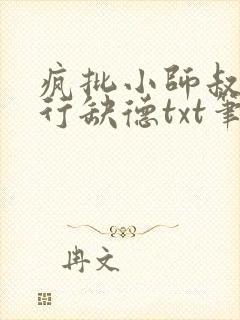 疯批小师叔
行缺德txt笔
冉文